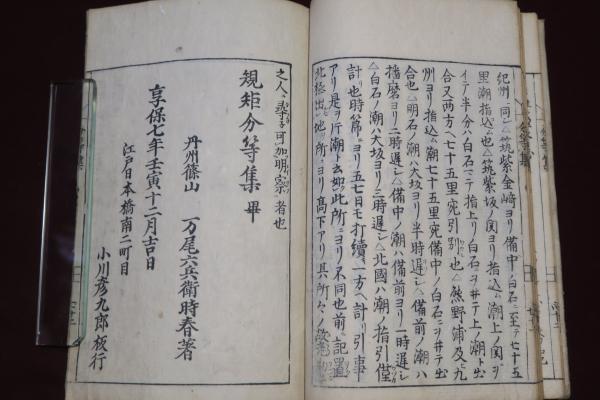 紀州ニ同シ△筑紫金﨑ヨリ備中ノ白石ニ至テ七十五
里潮指込ム也△筑紫坂ノ関ヨリ指込ム潮上ノ関ヲ
イテ半分ハ白石ニテ指上リ白石ヲ井テ上ノ潮ト出
合又両方ヘ七十五里宛引別ル也△熊野浦及ヒ九
州ヨリ指込ム潮七十五里宛備中ノ白石ニヲ井テ出
合也△明石ノ潮ハ大坂ヨリ半時遅シ△備前ノ潮ハ
播磨ヨリ二時遅シ△備中ノ潮ハ備前ヨリ一時遅シ
△白石ノ潮ハ大坂ヨリ三時遅シ△北國ハ潮ノ指引僅
計也時節ニヨリ五七日モ打續一方ヘ計リ引事
アリ是ヲ片潮ト云如此所ニヨリ不同也前ニ記置
北極出地ノ所ニヨリ高下アリ其所
之人尋子可加明察者也
規矩分等集 畢
丹州篠山 万尾六兵衛時春著
享保七年壬寅十二月吉日
江戸日本橋南二町目
小川彦九郎板行